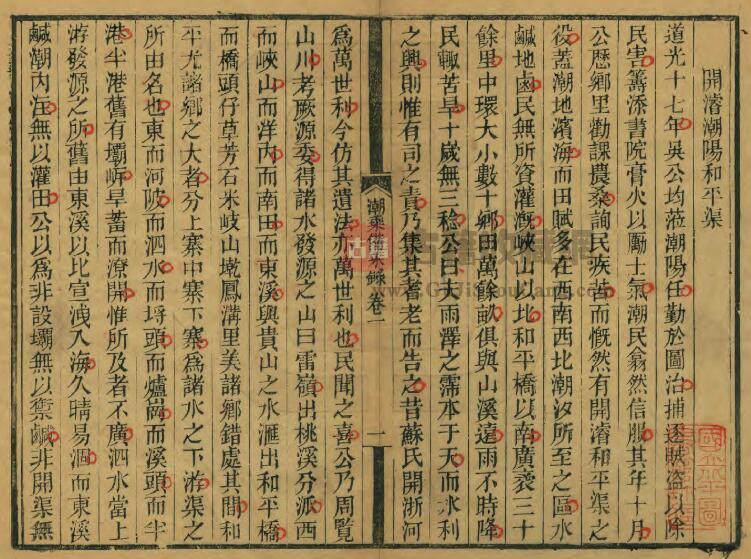 開濬潮陽和平渠
道光十七年吳公均蒞潮陽任勤於圖治捕逐賊盜以除
民害籌添書院膏火以勵士氣潮民翕然信服其年十月
公歷鄉里勸課農桑詢民疾苦而慨然有開濬和平渠之
役蓋潮地濱海而田賦多在西南西北潮汐所至之區水
鹹地鹵民無所資灌溉峽山以北和平橋以南廣袤三十
餘里中環大小數十鄉田萬餘畝俱與山溪遠雨不時降
民輙苦旱十歲無三稔公曰天雨澤之霈本于天而水利
之興則惟有司之責乃集其耆老而告之昔蘇氏開浙河
潮乘備采錄卷一
一
為萬世利今仿其遺法亦萬世利也民聞之喜公乃周覽
山川考厥源委得諸水發源之山曰雷嶺出桃溪分派西
而峽山而洋內而南田而東溪與貴山之水滙出和平橋
而橋頭仔草芳石米岐山墘鳳溝里美諸鄉錯處其間和
平尤諸鄉之大者分上寨中寨下寨為諸水之下游渠之
所由名也東而河陂而泗水而埒頭而爐崗而溪頭而半
港半港舊有壩岍旱蓄而潦開惟所及者不廣泗水當上
游發源之所舊由東溪以比宣洩入海久晴易涸而東溪
鹹潮內注無以灌田公以為非設壩無以禦鹹非開渠無